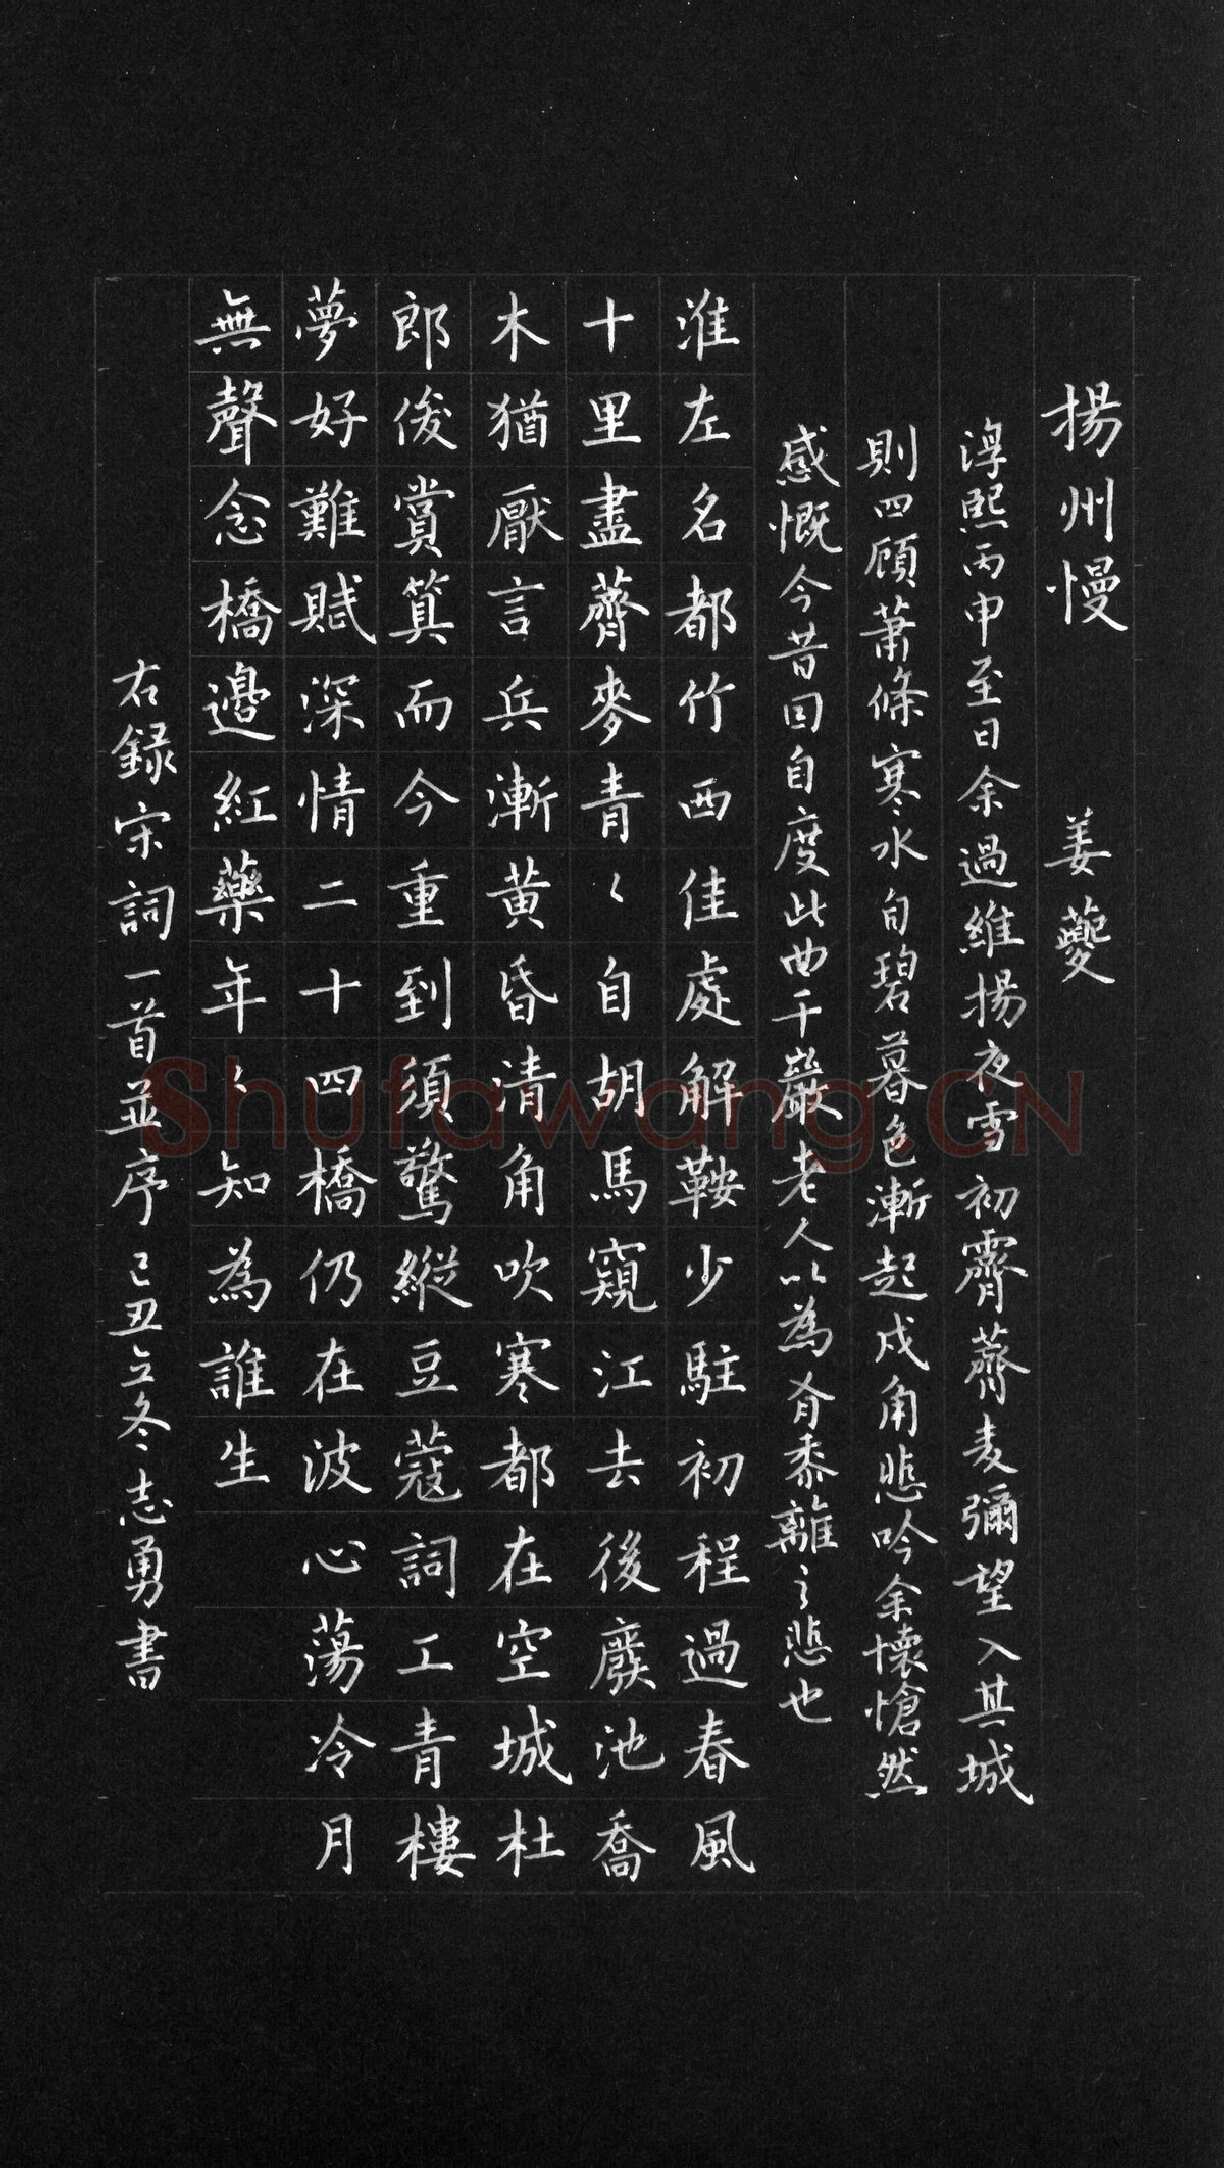 揚州慢 姜夔
淳熙丙申至日余過維揚夜雪初霽薺麦彌望入其城
則四顧蕭條寒水自碧暮色漸起戍角悲吟余懷愴然
感慨今昔因自度此曲千巖老人以為有黍離之悲也
淮左名都竹西佳處解鞍少駐初程過春風
十里盡薺麥青々自胡馬窺江去後廢池喬
木猶厭言兵漸黃昏清角吹寒都在空城杜
郎俊賞算而今重到須驚縱豆蔻詞工青樓
夢好難賦深情二十四橋仍在波心蕩冷月
無聲念橋邊紅藥年々知為誰生
右録宋詞一首並序 己丑立冬志勇書
Shufawang.CN